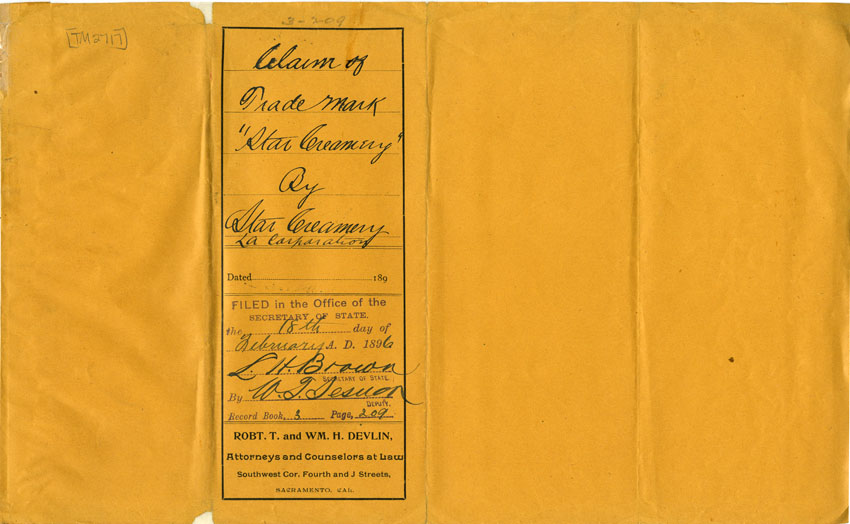 3-209
[TM2717]
Claim of
Trade Mark
"Star Creamery"
By
Star Creamery
[a Corporation]
Dated 189
FILED in the Office of the
SECRETARY OF STATE.
the 18th day of
February A. D. 1896
L. H. Brown
SECRETARY OF STATE
By W. T.
DEPUTY.
Record Book, 3 Page, 209
ROBT. T. and WM. H. DEVLIN,
Attorneys and Counselors at Law
Southwest Cor. Fourth and J Streets,
SACRAMENTO, CAL.